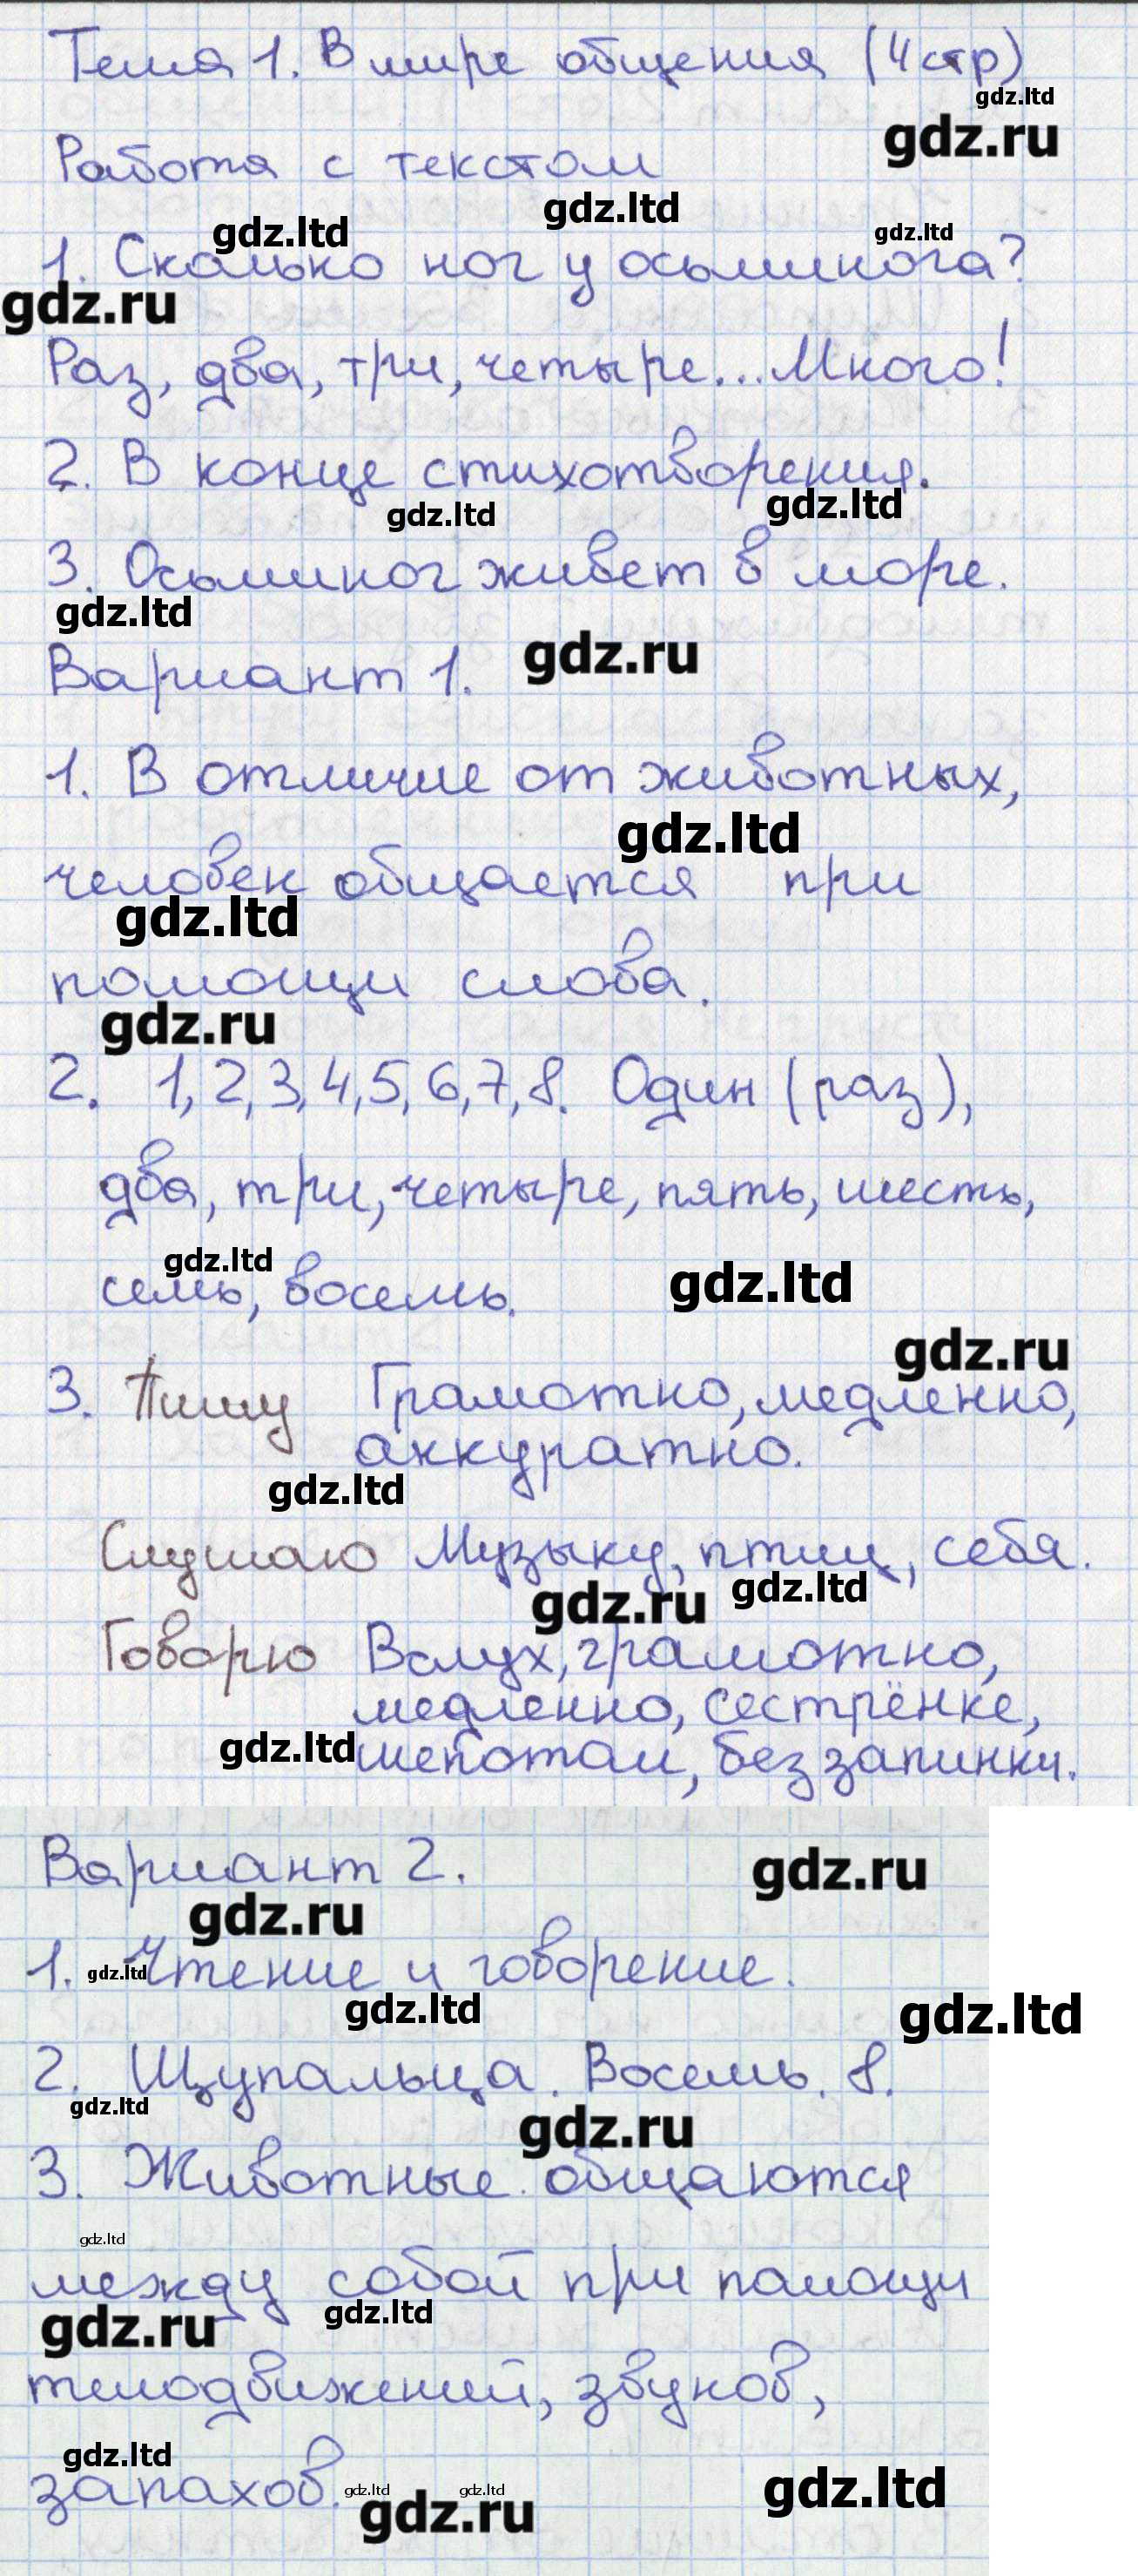 Тема 1. В мире общения (4 стр)
gdz.ltd
gdz.ru
Работа с текстом
gdz.ltd
gdz.ltd
gdz.ltd
1. Сколько ног у осьминога?
gdz.ru
Раз, два, три, четыре... Много!
2. В конце стихотворения.
gdz.ltd
gdz.ltd
3. Осьминог живет в море.
gdz.ltd
gdz.ru
Вариант 1.
1. В отличие от животных,
gdz.ltd
человек общается при
gdz.ltd
помощи слова.
gdz.ru
2. 1, 2, 3, 4, 5, 6, 7, 8. Один (раз),
два, три, четыре, пять, шесть,
gdz.ltd
gdz.ltd
семь, восемь.
gdz.ru
3. Пишу Грамотно, медленно,
аккуратно.
gdz.ltd
Слушаю Музыку, птиц, себя.
gdz.ru
gdz.ltd
Говорю Вслух, грамотно,
медленно, сестрёнке,
gdz.ltd
шепотом, без запинки.
Вариант 2.
gdz.ru
gdz.ru
1. Чтение и говорение.
gdz.ltd
gdz.ltd
gdz.ltd
2. Щупальца. Восемь. 8.
gdz.ltd
gdz.ru
3. Животные общаются
gdz.ltd
между собой при помощи
gdz.ru
gdz.ltd
телодвижений, звуков,
gdz.ltd
запахов.
gdz.ltd
gdz.ltd
gdz.ru
gdz.ltd